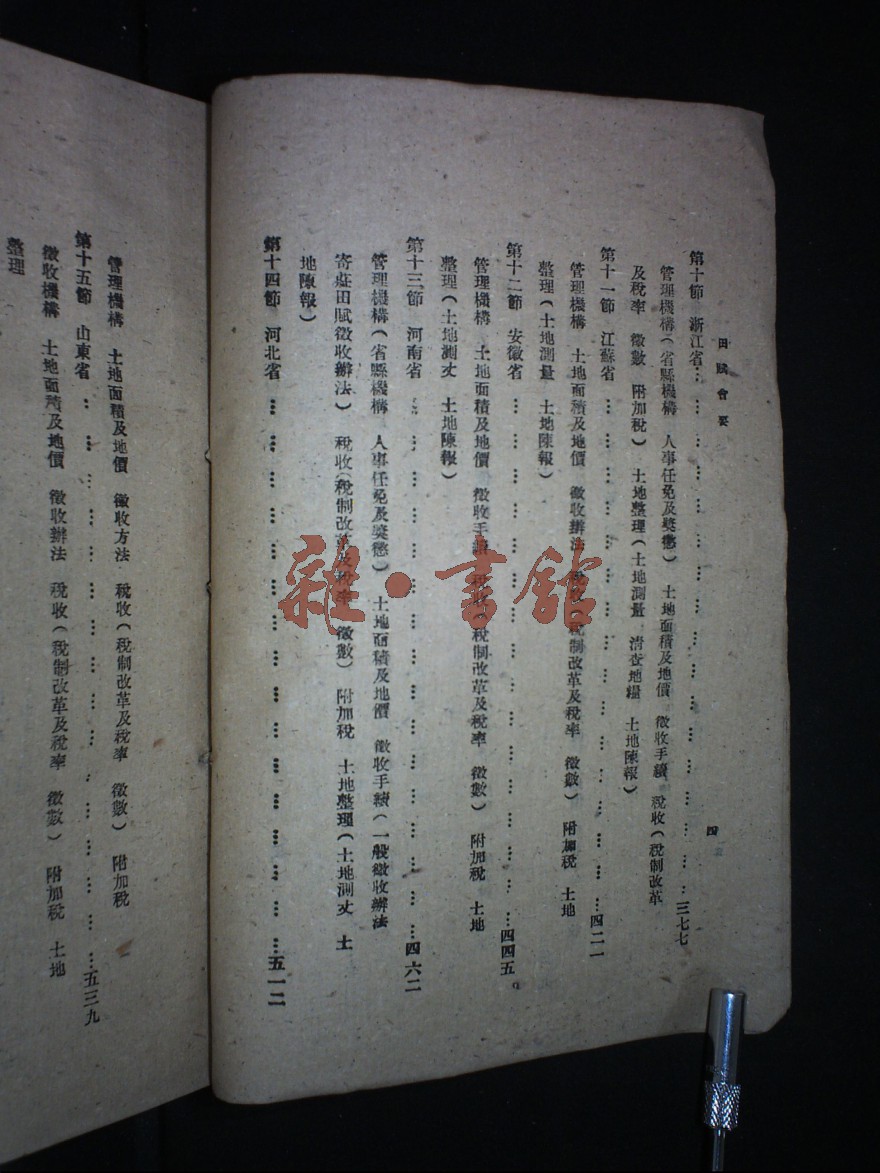 田賦會要
四
第十節 浙江省……三七七
管理機構（省縣機構 人事任免及獎懲） 土地面積及地價 徵收手續 稅收（稅制改革
及稅率 徵數 附加稅） 土地整理（土地測量 清查地糧 土地陳報）
第十一節 江蘇省……四二一
管理機構 土地面積及地價 徵收辦法 稅收（稅制改革及稅率 徵數） 附加稅 土地
整理（土地測量 土地陳報）
第十二節 安徽省……四四五
管理機構 土地面積及地價 徵收手續 稅收（稅制改革及稅率 徵數） 附加稅 土地
整理（土地測丈 土地陳報）
第十三節 河南省……四六二
管理機構（省縣機構 人事任免及獎懲） 土地面積及地價 徵收手續（一般徵收辦法
寄莊田賦徵收辦法） 稅收（稅制改革及稅率 徵數） 附加稅 土地整理（土地測丈 土
地陳報）
第十四節 河北省……五一二
管理機構 土地面積及地價 徵收方法 稅收（稅制改革及稅率 徵數） 附加稅
第十五節 山東省……五三九
徵收機構 土地面積及地價 徵收辦法 稅收（稅制改革及稅率 徵數） 附加稅 土地
整理
雜·書館